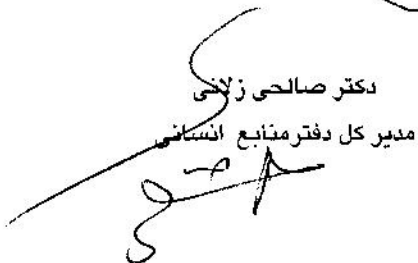 دکتر صالحی زلانی
مدیر کل دفتر منابع انسانی